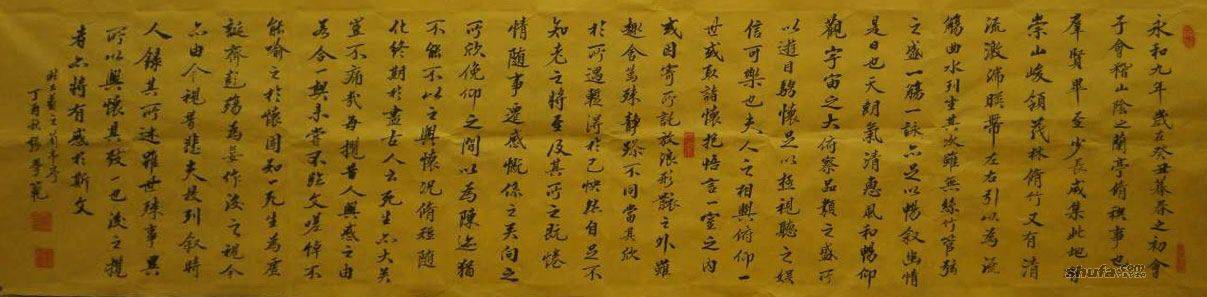 永和九年歲在癸丑暮春之初會
于會稽山陰之蘭亭脩禊事也
群賢畢至少長咸集此地有
崇山峻領茂林脩竹又有清
流激湍暎帶左右引以為流
觴曲水列坐其次雖無絲竹管弦
之盛一觴一詠亦足以暢叙幽情
是日也天朗氣清惠風和暢仰
觀宇宙之大俯察品類之盛所
以遊目騁懷足以極視聽之娛
信可樂也夫人之相與俯仰一
世或取諸懷抱悟言一室之內
或因寄所託放浪形骸之外雖
趣舍萬殊靜躁不同當其欣
於所遇輒得於己怏然自足不
知老之將至及其所之既惓
情隨事遷感慨係之矣向之
所欣俛仰之間以為陳迹猶
不能不以之興懷況脩短隨
化終期於盡古人云死生亦大矣
豈不痛哉每攬昔人興感之由
若合一契未嘗不臨文嗟悼不
能喻之於懷固知一死生為虛
誕齊彭殤為妄作後之視今
亦由今視昔悲夫故列叙時
人錄其所述雖世殊事異
所以興懷其致一也後之攬
者亦將有感於斯文
王羲之蘭亭序
丁酉秋
shufa.com